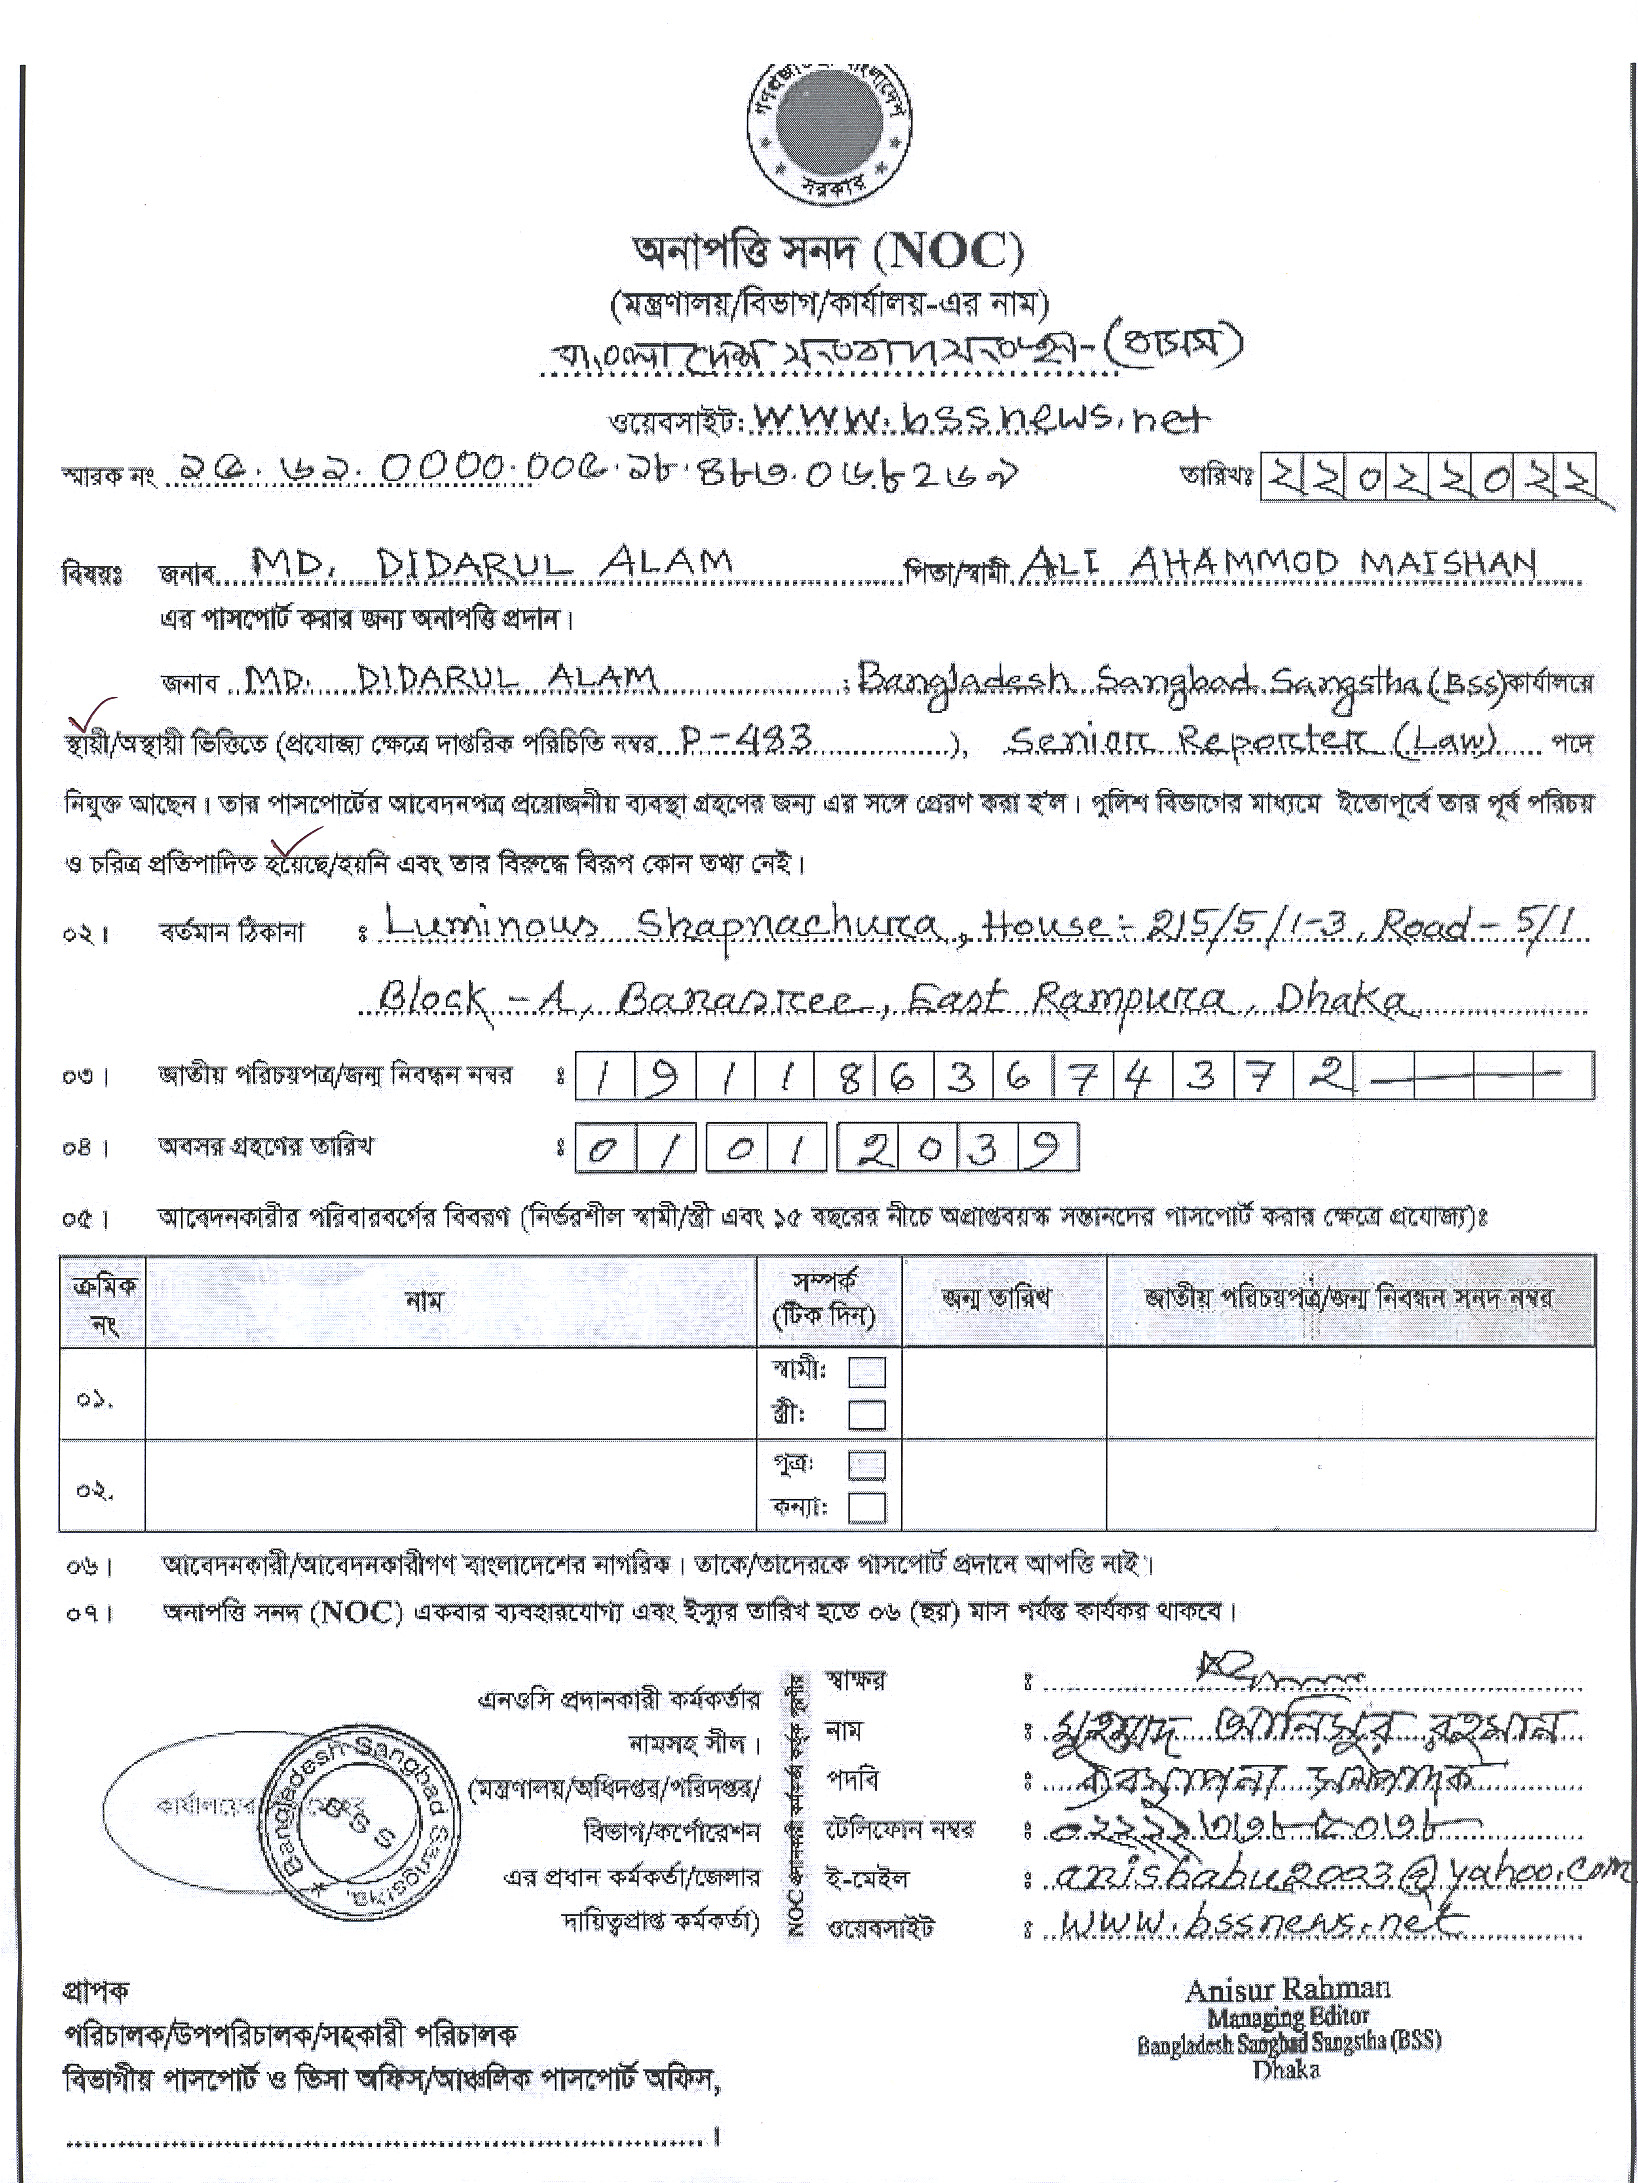 গণপ্রজাতন্ত্রী বাংলাদেশ
সরকার
অনাপত্তি সনদ (NOC)
(মন্ত্রণালয়/বিভাগ/কার্যালয়-এর নাম)
বাংলাদেশ সংবাদ সংস্থা-(বাসস)
ওয়েবসাইট: www.bssnews.net
স্মারক নং ২৫.৬২.0000.00৫.২৮.
তারিখঃ ২২০২২০২২
বিষয়ঃ জনাব MD. DIDARUL ALAM পিতা/স্বামী ALI AHAMMOD MAISHAN
এর পাসপোর্ট করার জন্য অনাপত্তি প্রদান।
জনাব MD. DIDARUL ALAM : Bangladesh Sangbad Sangstha (BSS) কার্যালয়ে
স্থায়ী/অস্থায়ী ভিত্তিতে (প্রযোজ্য ক্ষেত্রে দাপ্তরিক পরিচিতি নম্বর P-483 ), Senior Reporter (Law) পদে
নিযুক্ত আছেন। তার পাসপোর্টের আবেদনপত্র প্রয়োজনীয় ব্যবস্থা গ্রহণের জন্য এর সঙ্গে প্রেরণ করা হ'ল। পুলিশ বিভাগের মাধ্যমে ইতোপূর্বে তার পূর্ব পরিচয়
ও চরিত্র প্রতিপাদিত হয়েছে/হয়নি এবং তার বিরুদ্ধে বিরূপ কোন তথ্য নেই।
০২। বর্তমান ঠিকানা : Luminous Shapnachura, House:- 215/5/1-3, Road-5/1
Block-A, Banasree, East Rampura, Dhaka
০৩। জাতীয় পরিচয়পত্র/জন্ম নিবন্ধন নম্বর : 1911863674372
০৪। অবসর গ্রহণের তারিখ : 01 01 2039
০৫। আবেদনকারীর পরিবারবর্গের বিবরণ (নির্ভরশীল স্বামী/স্ত্রী এবং ১৫ বছরের নীচে অপ্রাপ্তবয়স্ক সন্তানদের পাসপোর্ট করার ক্ষেত্রে প্রযোজ্য)ঃ
ক্রমিক নং নাম সম্পর্ক (টিক দিন) জন্ম তারিখ জাতীয় পরিচয়পত্র/জন্ম নিবন্ধন সনদ নম্বর
০১. স্বামী:
স্ত্রী:
০২. পুত্র:
কন্যা:
০৬। আবেদনকারী/আবেদনকারীগণ বাংলাদেশের নাগরিক। তাকে/তাদেরকে পাসপোর্ট প্রদানে আপত্তি নাই।
০৭। অনাপত্তি সনদ (NOC) একবার ব্যবহারযোগ্য এবং ইস্যুর তারিখ হতে ০৬ (ছয়) মাস পর্যন্ত কার্যকর থাকবে।
এনওসি প্রদানকারী কর্মকর্তার
নামসহ সীল।
(মন্ত্রণালয়/অধিদপ্তর/পরিদপ্তর/
বিভাগ/কর্পোরেশন
এর প্রধান কর্মকর্তা/জেলার
দায়িত্বপ্রাপ্ত কর্মকর্তা)
কার্যালয়ের
Bangladesh Sangbad Sangstha.
BSS
স্বাক্ষর :
নাম : মুহাম্মাদ আনিসুর রহমান
পদবি : ব্যবস্থাপনা সম্পাদক
টেলিফোন নম্বর :
ই-মেইল : anisbabu2003@yahoo.com
ওয়েবসাইট : www.bssnews.net
Anisur Rahman
Managing Editor
Bangladesh Sangbad Sangstha (BSS)
Dhaka
প্রাপক
পরিচালক/উপপরিচালক/সহকারী পরিচালক
বিভাগীয় পাসপোর্ট ও ভিসা অফিস/আঞ্চলিক পাসপোর্ট অফিস,